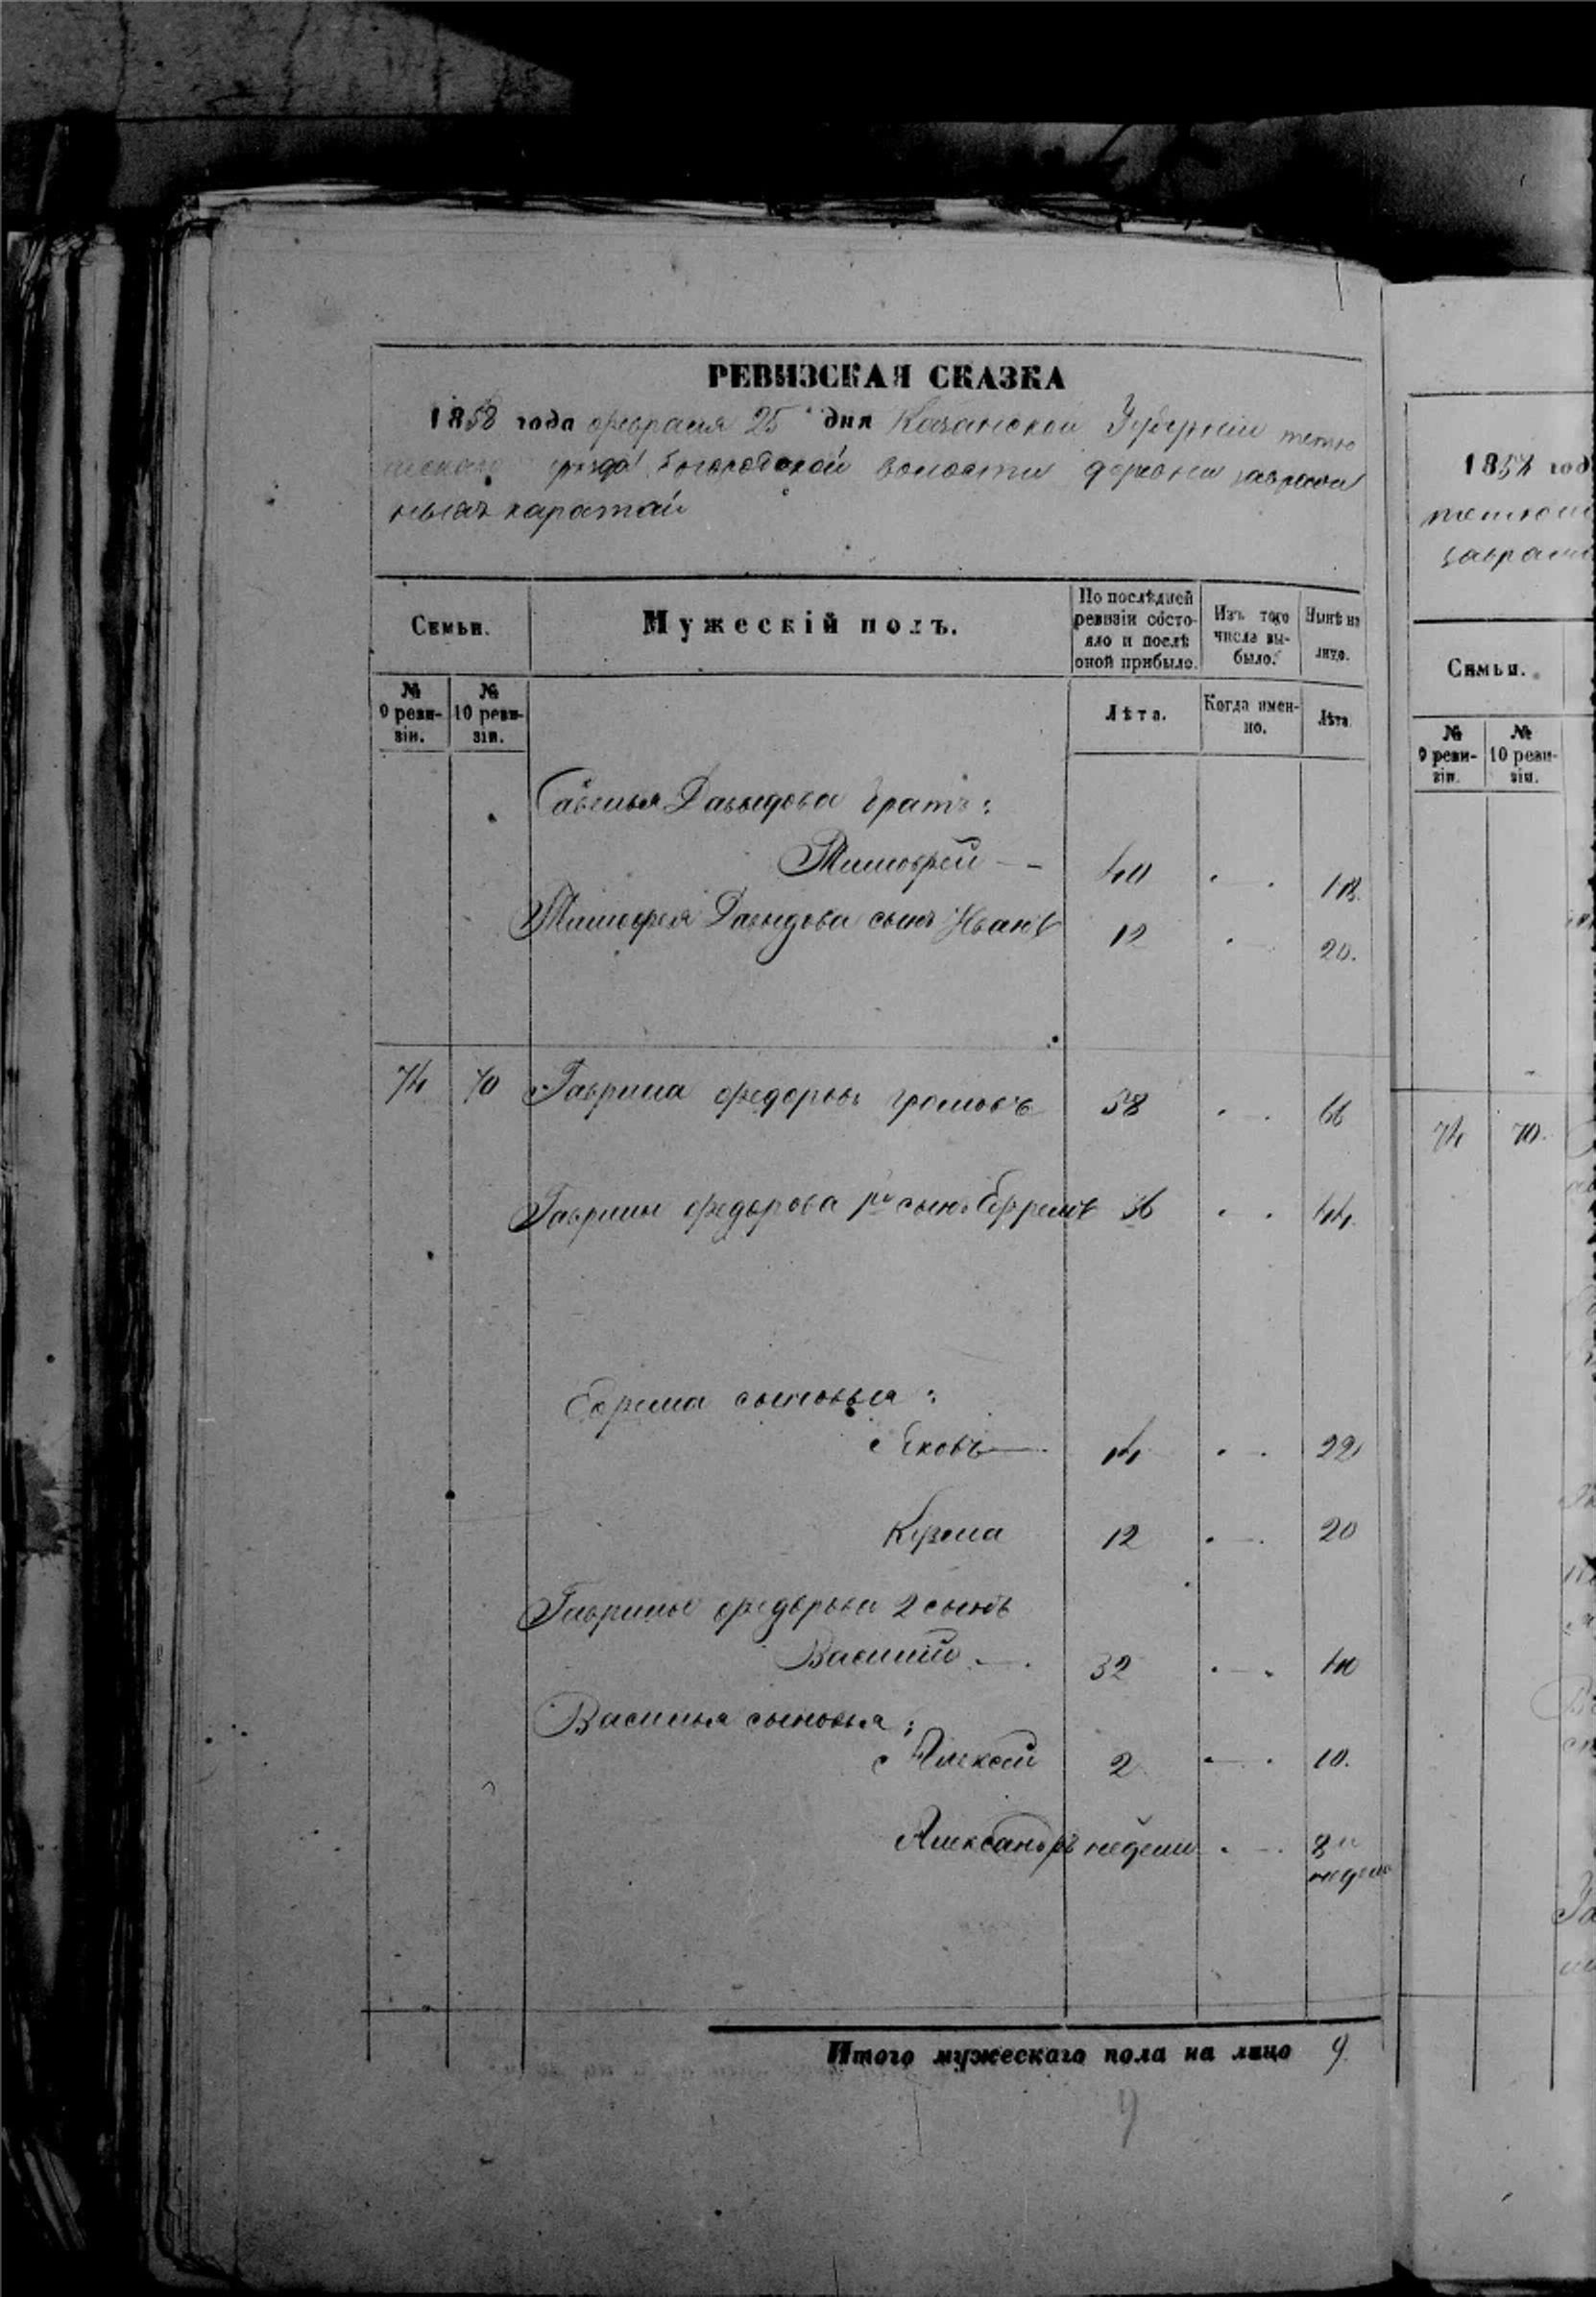 РЕВИЗСКАЯ СКАЗКА
1858 года февраля 25 дня Казанской Губерніи тетю
шскаго уезда Богородской волости деревни заврашн
ныхъ каратай
Семьи.
Мужескій полъ.
По послѣдней ревизіи состояло и послѣ оной прибыло.
Изъ того числа выбыло.
Нынѣ на лицо.
№ 9 ревизіи.
№ 10 ревизіи.
Лѣта.
Когда именно.
Лѣта
Савелья Давыдова братъ:
Тимофей — 40 . — . 48.
Тимофея Давыдова сынъ Иванъ 12 . — 20.
74 70 Гаврила федоровъ громовъ 58 . — . 66
Гаврилы федорова 1й сынъ Ефремъ 36 . — . 44.
Ефрема сыновья:
Яковъ — 14 . — . 22
Кузма 12 . — . 20
Гаврилы федорова 2 сынъ
Василий — . 32 . — . 40
Василья сыновья:
Алексей 2 . — . 10.
Александръ недели . — . 8и
недель
Итого мужескаго пола на лицо 9.
9
1858 год
тетюш
заврашн
Семьи.
№ 9 ревизіи.
№ 10 ревизіи.
74 70.